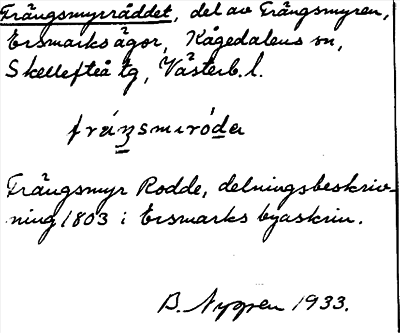 Trängsmyrråddet, del av Trängsmyren,
Ersmarks ägor, Kågedalens sn,
Skellefteå tg, Västerb. l.
Trängsmyr Rodde, delningsbeskriv-
ning 1803 i Ersmarks byaskrin.
B. Nygren 1933.